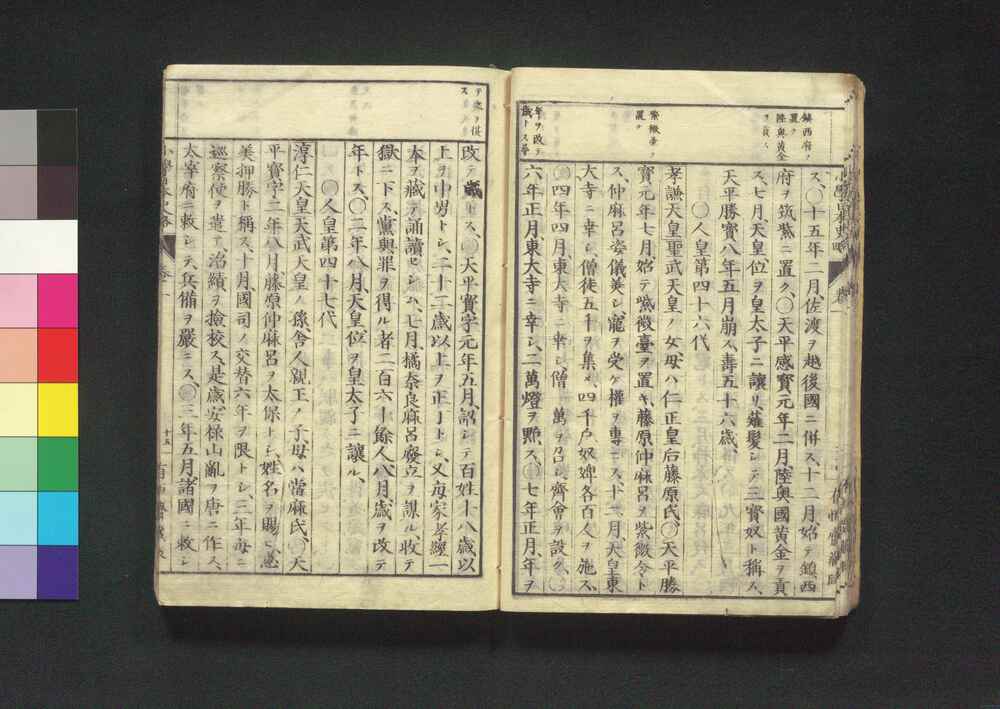 鎮西府ヲ
置ク
陸奧黃金
ヲ貢ス
紫微臺ヲ
置ク
年ヲ改テ
歲トス
ス、〇十五年二月佐渡ヲ越後國ニ併ス、十二月始テ鎮西
府ヲ筑紫ニ置ク、〇天平感寶元年二月、陸奧國黃金ヲ貢
ス、七月、天皇位ヲ皇太子ニ讓リ、薙髮シテ三寶奴ト稱ス、
天平勝寶八年五月崩ス、壽五十六歲、
〇人皇第四十六代
孝謙天皇聖武天皇ノ女母ハ仁正皇后藤原氏、〇天平勝
寶元年七月、始テ紫微臺ヲ置キ、藤原仲麻呂ヲ紫微令ト
ス、仲麻呂姿儀美シ寵ヲ受ケ權ヲ專ニス、十二月、天皇東
大寺ニ幸シ、僧徒五千ヲ集メ、四千戶奴婢各百人ヲ施ス、
〇四年四月、東大寺ニ幸シ、僧一萬ヲ召シ、齊會ヲ設ク、〇
六年正月、東大寺ニ幸シ、二萬燈ヲ點ス、〇七年正月、年ヲ
テ之ヲ供
ス
改テ歲トス、〇天平寶字元年五月、詔シテ百姓十八歲以
上ヲ中男トシ、二十二歲以上ヲ正丁トシ、又每家孝經一
本ヲ藏テ誦讀セシム、七月、橘奈良麻呂廢立ヲ謀ル、收テ
獄ニ下ス、黨與罪ヲ得ル者二百六十餘人、八月、歲ヲ改テ
年トス、〇二年八月、天皇位ヲ皇太子ニ讓ル、
〇人皇第四十七代
淳仁天皇天武天皇ノ孫、舍人親王ノ子、母ハ當麻氏、〇天
平寶字二年八月、藤原仲麻呂ヲ太保トシ、姓名ヲ賜ヒ惠
美押勝ト稱ス、十月、國司ノ交替六年ヲ限トシ、三年每ニ
巡察使ヲ遣テ、治績ヲ撿挍ス、是歲、安祿山亂ヲ唐ニ作ス、
太宰府ニ敕シテ兵備ヲ嚴ニス、〇三年五月、諸國ニ敕シ
十五